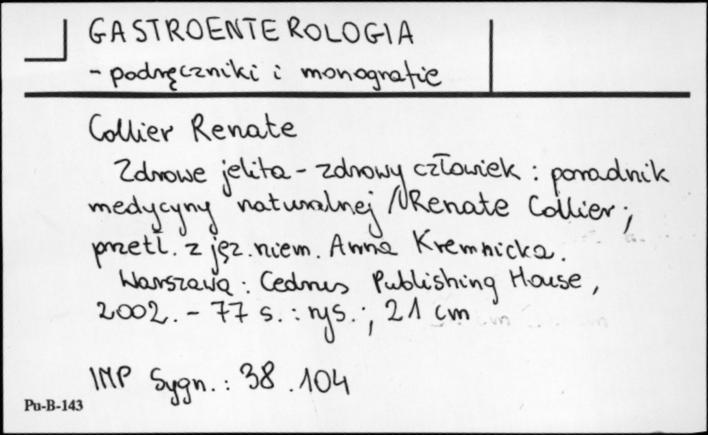 GASTROENTEROLOGIA
- podręczniki i monografie
Collier Renate
Zdrowe jelita - zdrowy człowiek : poradnik
medycyny naturalnej / Renate Collier ;
przetł. z jęz. niem. Anna Kremnicka.
Warszawa : Cedrus Publishing House,
2002. - 77 s. : rys. ; 21 cm
INP Sygn. : 38.104
Pu-B-143